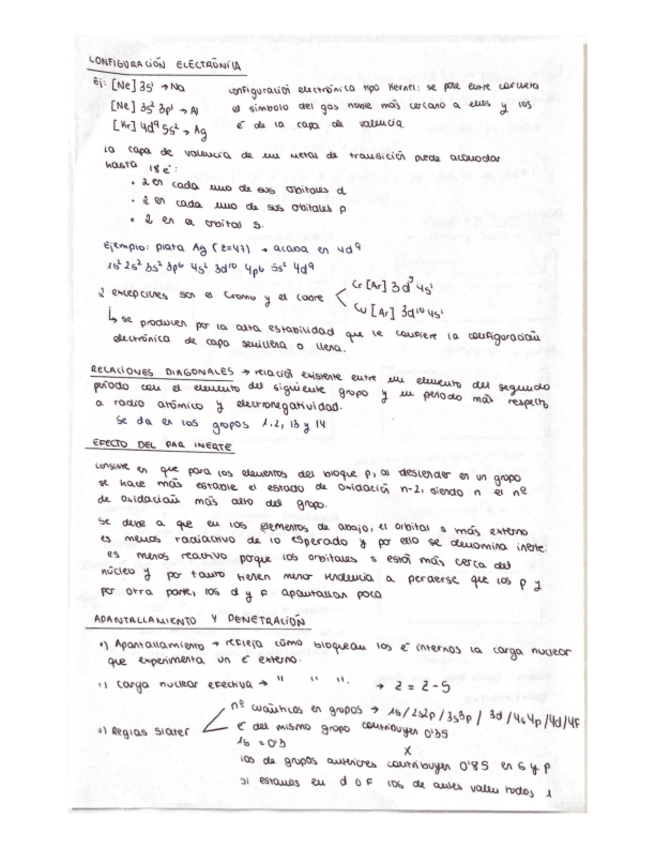 CONFIGURACIÓN ELECTRÓNICA
Ej: [Ne] 3s¹ → Na
configuración electrónica tipo Kernel: se pone entre corchetes
[Ne] 3s² 3p¹ → Al
el símbolo del gas noble más cercano a ellos y los
[Kr] 4d⁹ 5s² → Ag
e⁻ de la capa de valencia.
La capa de valencia de un metal de transición puede acomodar
hasta 18 e⁻:
• 2 en cada uno de sus orbitales d
• 2 en cada uno de sus orbitales p
• 2 en el orbital s.
Ejemplo: plata Ag (z=47) → acaba en 4d⁹
1s² 2s² 3s² 3p⁶ 4s² 3d¹⁰ 4p⁶ 5s² 4d⁹
2 excepciones son el cromo y el cobre
Cr [Ar] 3d⁵ 4s¹
Cu [Ar] 3d¹⁰ 4s¹
↳ se producen por la alta estabilidad que le confiere la configuración
electrónica de capa semillena o llena.
RELACIONES DIAGONALES → relación existente entre un elemento del segundo
período con el elemento del siguiente grupo y un período más respecto
a radio atómico y electronegatividad.
Se da en los grupos 1, 2, 13 y 14
EFECTO DEL PAR INERTE
Consiste en que para los elementos del bloque p, al descender en un grupo
se hace más estable el estado de oxidación n-2, siendo n el nº
de oxidación más alto del grupo.
Se debe a que en los elementos de abajo, el orbital s más externo
es menos radiactivo de lo esperado y por ello se denomina inerte:
es menos reactivo porque los orbitales s están más cerca del
núcleo y por tanto tienen menor tendencia a perderse que los p y
por otra parte, los d y f apantallan poco
APANTALLAMIENTO Y PENETRACIÓN
•) Apantallamiento → refleja cómo bloquean los e⁻ internos la carga nuclear
que experimenta un e⁻ externo.
•) Carga nuclear efectiva → " " ". → z = z - S
nº cuánticos en grupos → 1s / 2s2p / 3s3p / 3d / 4s4p / 4d / 4f
•) Reglas Slater
e⁻ del mismo grupo contribuyen 0'35
1s = 0'3
x
los de grupos anteriores contribuyen 0'85 en s y p
si estamos en d o f los de antes valen todos 1